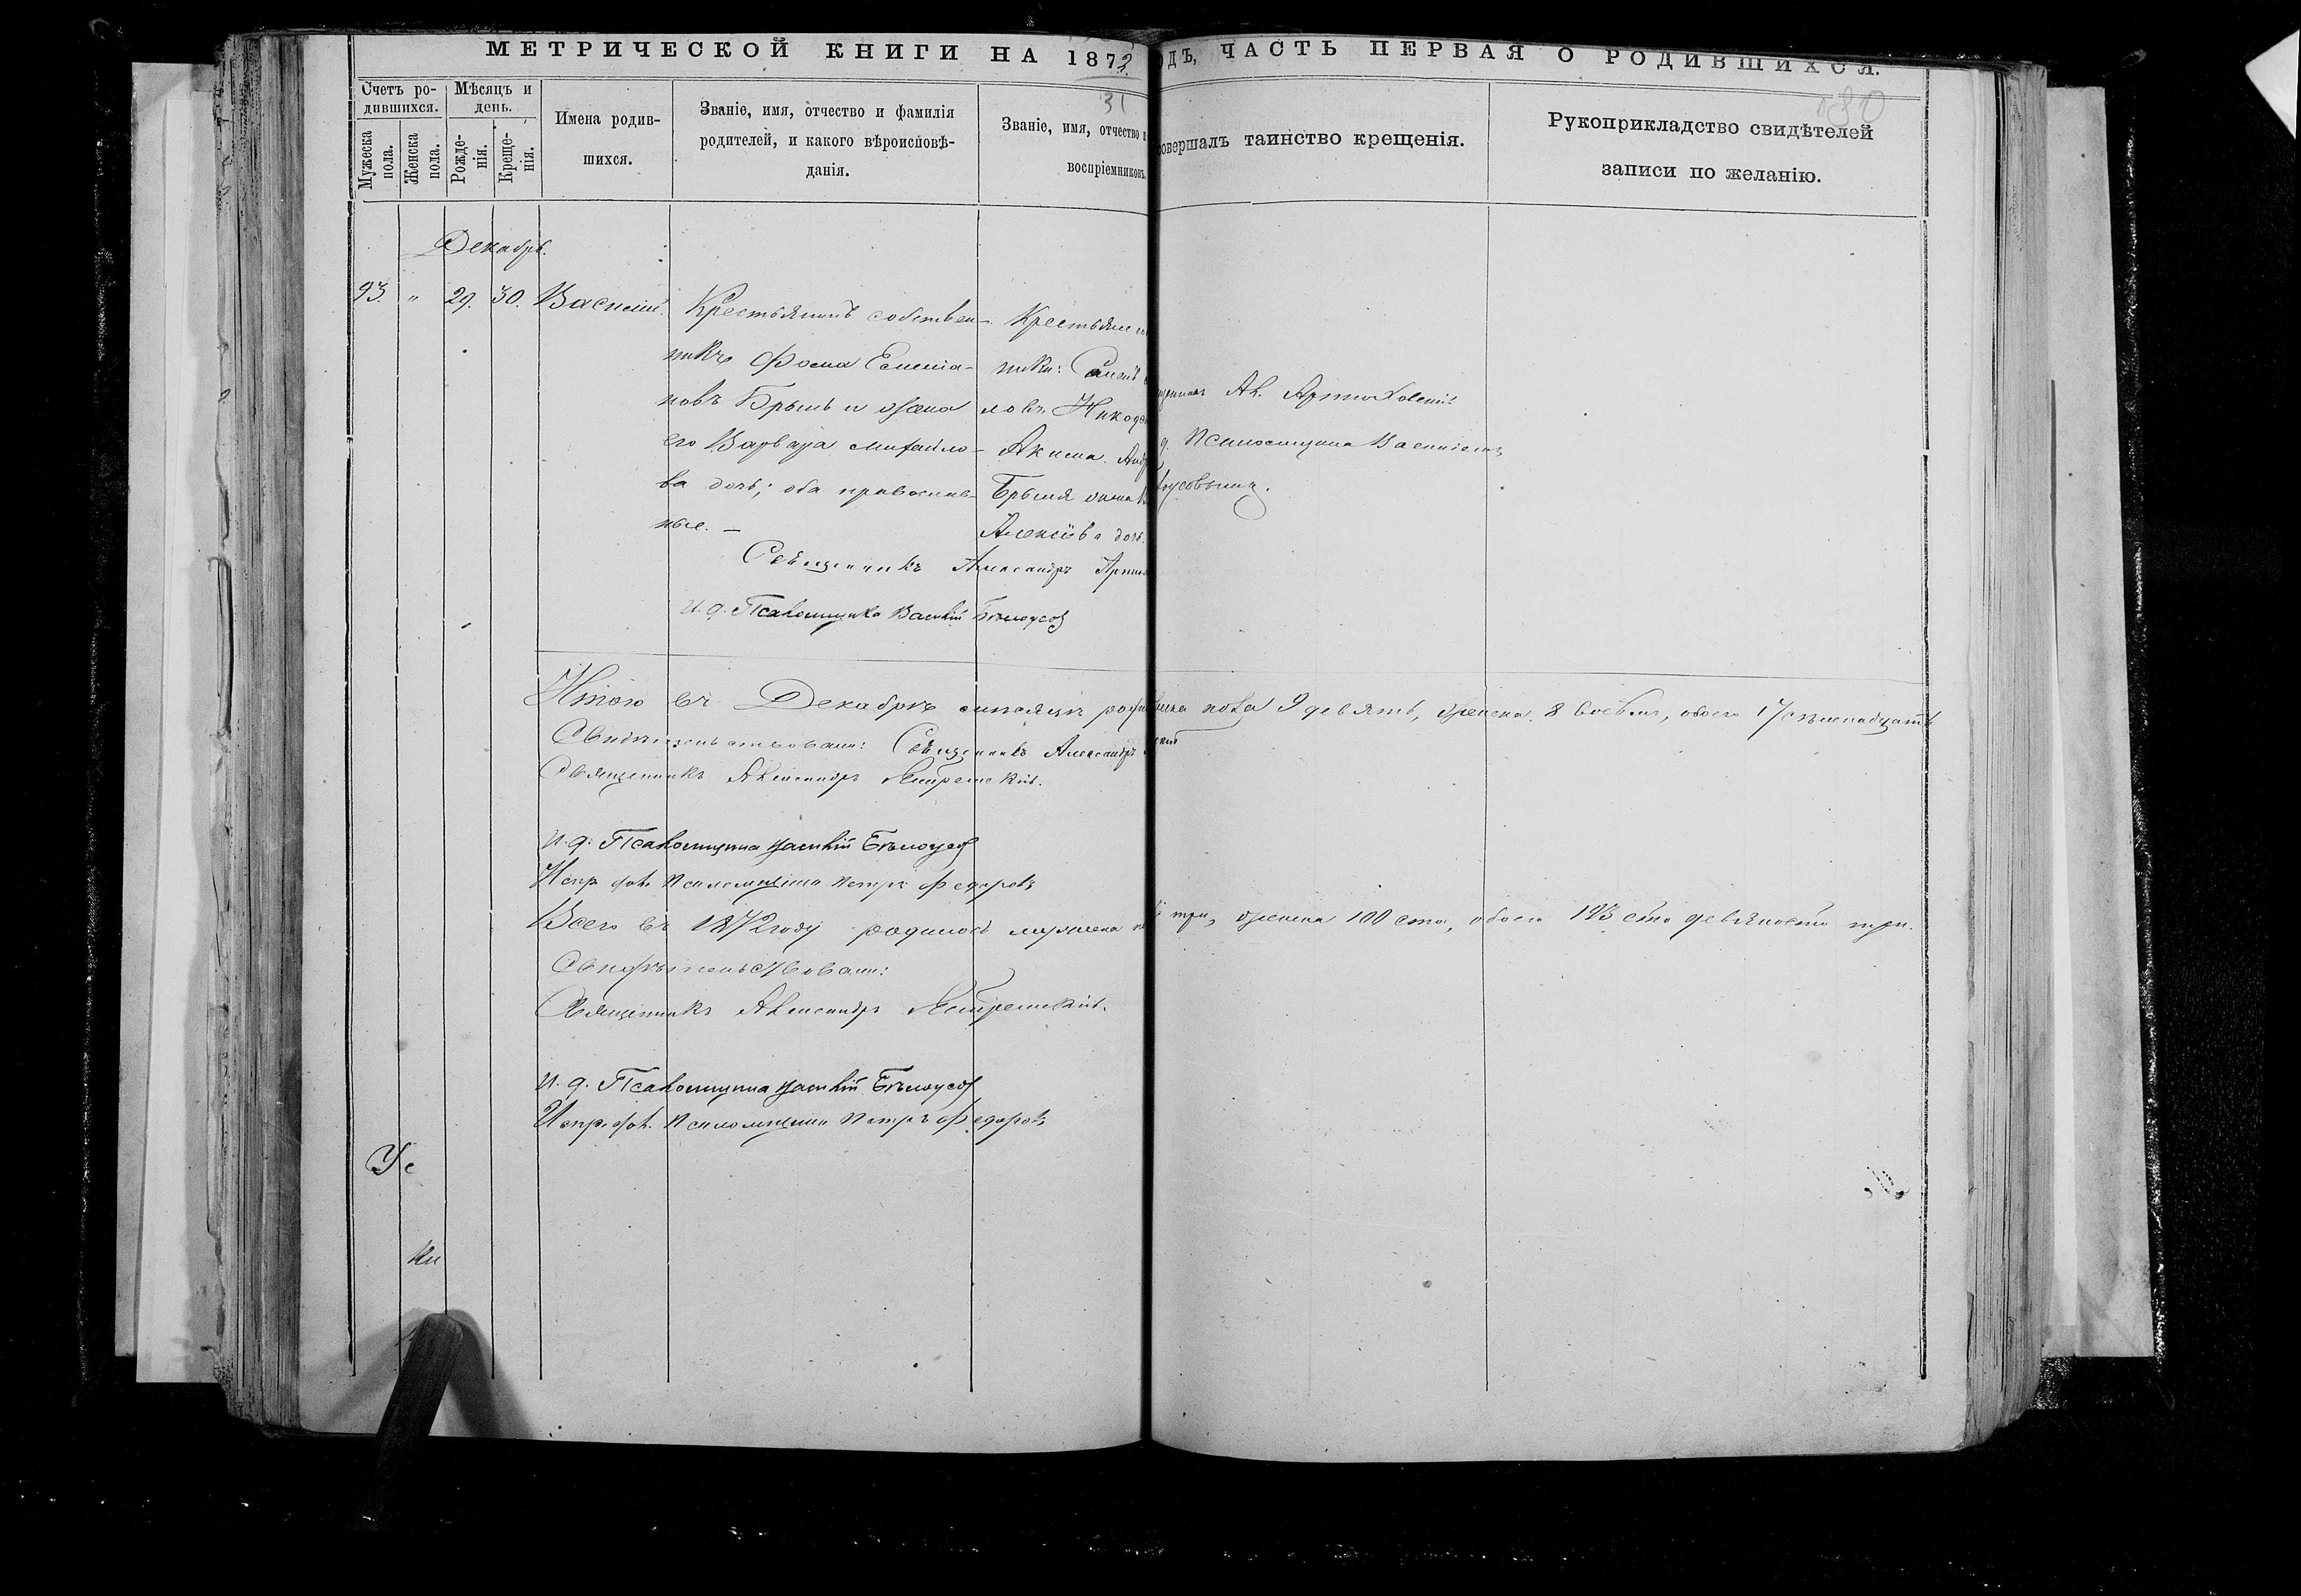 МЕТРИЧЕСКОЙ КНИГИ НА 1872
ДЪ, ЧАСТЬ ПЕРВАЯ О РОДИВШИХСЯ.
31
180
Счетъ ро-
дившихся.
Мужеска
пола.
Женска
пола.
Мѣсяцъ и
день.
Рожде-
нія.
Креще-
нія.
Имена родив-
шихся.
Званіе, имя, отчество и фамилія
родителей, и какого вѣроисповѣ-
данія.
Званіе, имя, отчество и
воспріемниковъ.
совершалъ таинство крещенія.
Рукоприкладство свидѣтелей
записи по желанію.
Декабрь.
93. " 29. 30. Василій.
Крестьянинъ собствен-
никъ Фома Емелiа-
новъ Брыль и жена
его Варвара Михайло-
ва дочь; оба православ-
ные. —
Крестьяне
ники:
ловъ Никоде
Акима Анд
Брыля жена
Алексіева дочь.
Ал.
д. Псаломщика Василіемъ
оусовымъ.
Священникъ Александръ
И. д. Псаломщика Василій Бѣлоусов
Итого въ Декабрѣ мѣсяцѣ
пола 9 девять, женска 8 восемь, обоего 17 семнадцать
Свидѣтельствовали: Священникъ Александръ
Священникъ Александръ
И. д. Псаломщика Василій Бѣлоусов
Испр. дол. Псаломщика Петръ Федоровъ
Всего въ 1872 году родилось мужеска
три, женска 100 сто, обоего 193 сто девяносто три.
Свидѣтельствовали:
Священникъ Александръ
И. д. Псаломщика Василій Бѣлоусов
Испр. дол. Псаломщика Петръ Федоровъ
Ус
ки